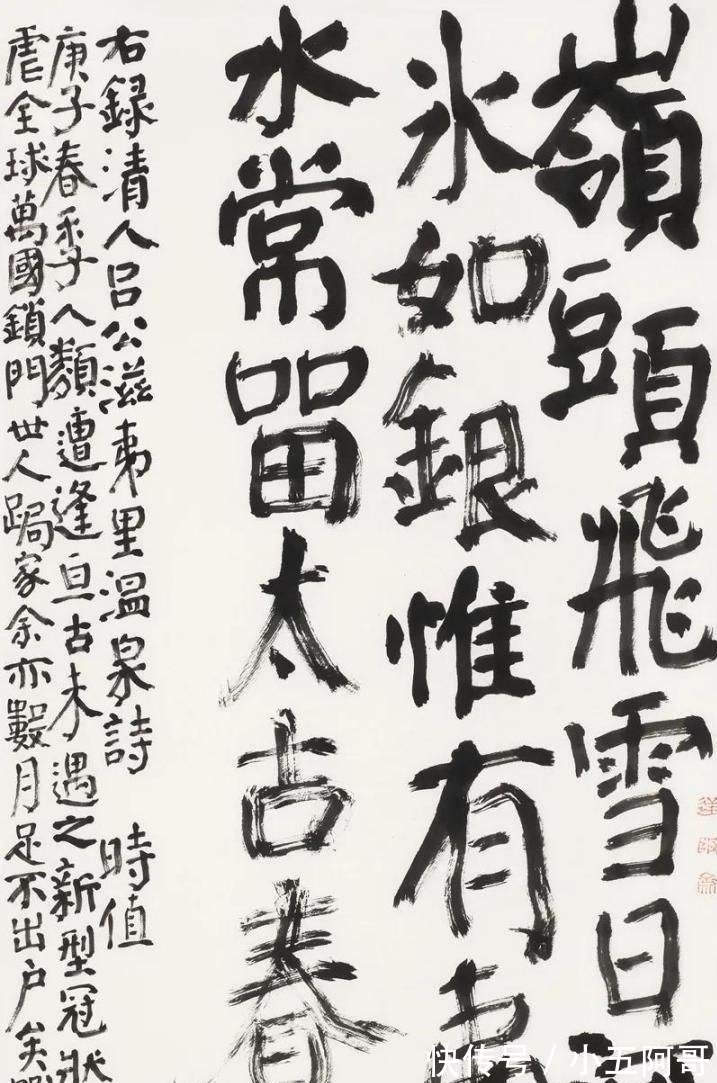 嶺頭飛雪日
氷如銀惟有
水常留太古春
右録清人呂公滋里溫泉詩 時值
庚子春季人類遭逢亘古未遇之新型冠狀
虐全球萬國鎖門世人跼家余亦數月足不出户矣
快传号 / 小五阿哥